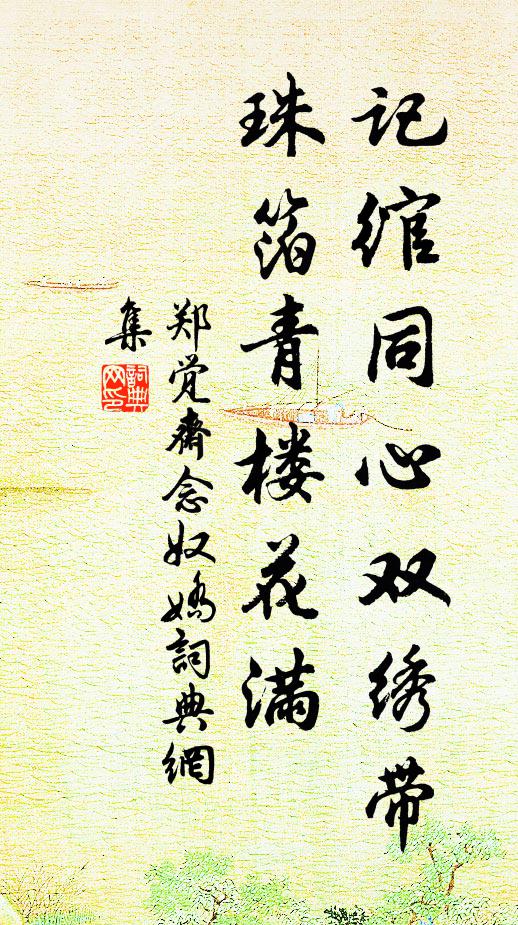 记绾同心双绣带
珠箔青楼花满
郑觉斋念奴娇詞典網
集
詞典
网印